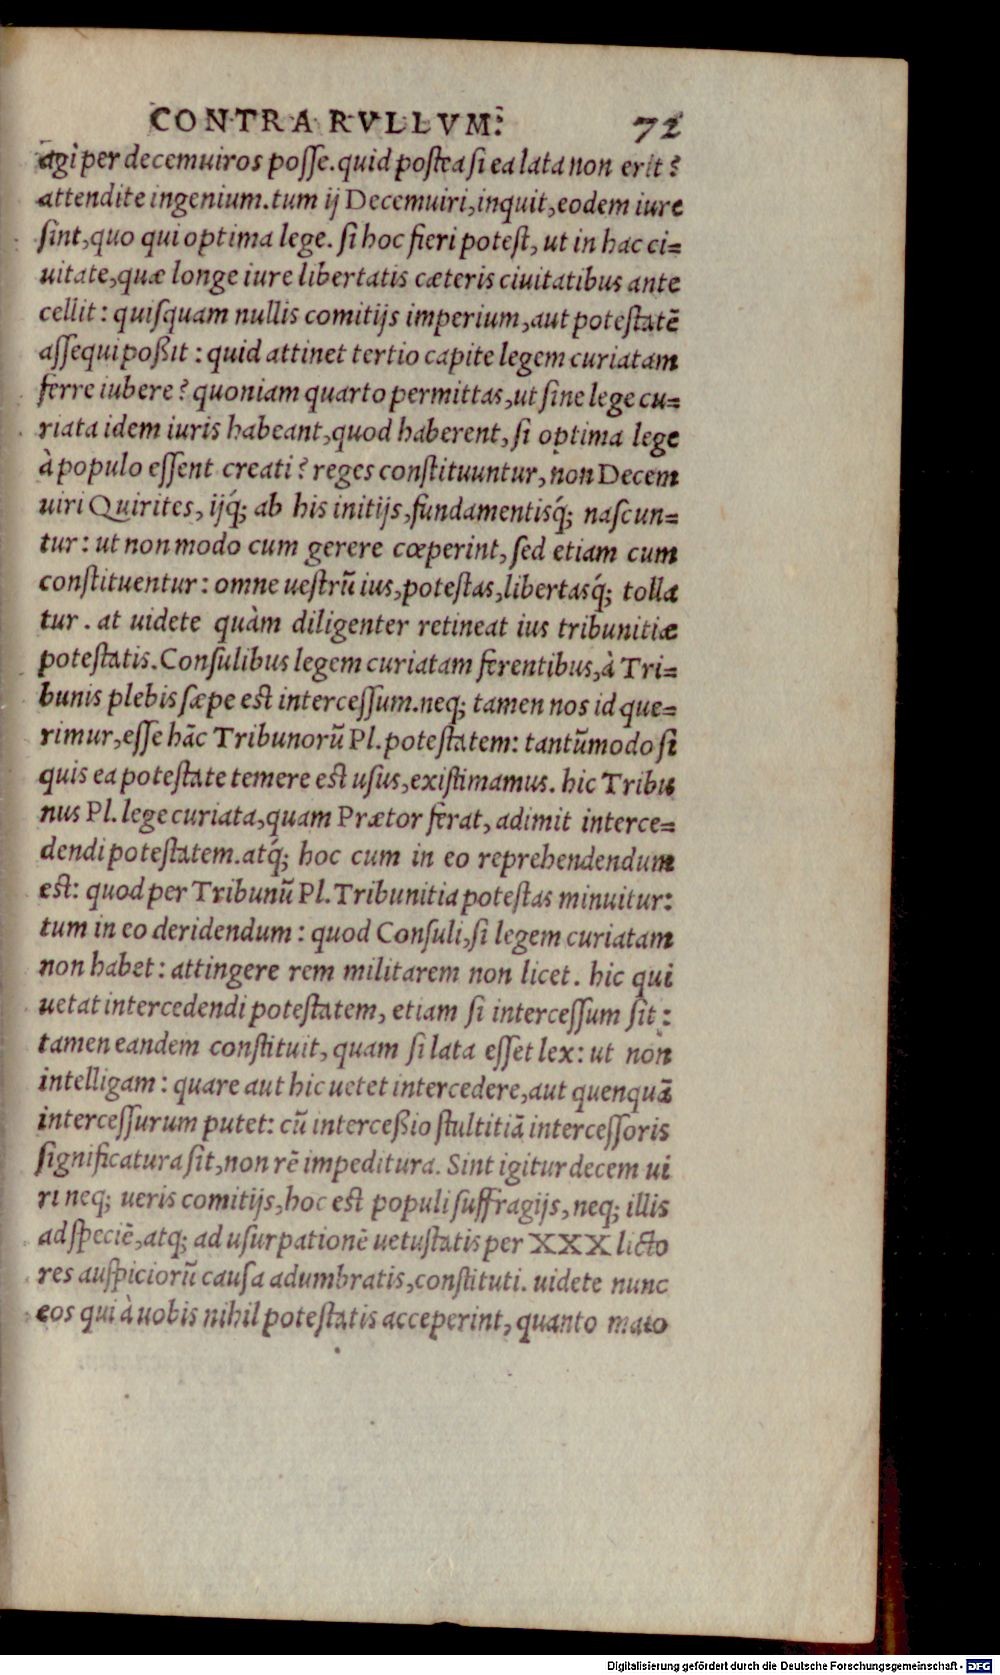 CONTRA RVLLVM. 72
agi per decemuiros posse. quid postea si ea lata non erit?
attendite ingenium. tum ij Decemuiri, inquit, eodem iure
sint, quo qui optima lege. si hoc fieri potest, ut in hac ci=
uitate, quæ longe iure libertatis cæteris ciuitatibus ante
cellit: quisquam nullis comitijs imperium, aut potestatē
assequi poßit: quid attinet tertio capite legem curiatam
ferre iubere? quoniam quarto permittas, ut sine lege cu=
riata idem iuris habeant, quod haberent, si optima lege
à populo essent creati? reges constituuntur, non Decem
uiri Quirites, ijq́; ab his initijs, fundamentisq́; nascun=
tur: ut non modo cum gerere cœperint, sed etiam cum
constituentur: omne uestrū ius, potestas, libertasq́; tolla
tur. at uidete quàm diligenter retineat ius tribunitiæ
potestatis. Consulibus legem curiatam ferentibus, à Tri=
bunis plebis sæpe est intercessum. neq; tamen nos id que=
rimur, esse hāc Tribunorū Pl. potestatem: tantūmodo si
quis ea potestate temere est usus, existimamus. hic Tribu
nus Pl. lege curiata, quam Prætor ferat, adimit interce=
dendi potestatem. atq́; hoc cum in eo reprehendendum
est: quod per Tribunū Pl. Tribunitia potestas minuitur:
tum in eo deridendum: quod Consuli, si legem curiatam
non habet: attingere rem militarem non licet. hic qui
uetat intercedendi potestatem, etiam si intercessum sit:
tamen eandem constituit, quam si lata esset lex: ut non
intelligam: quare aut hic uetet intercedere, aut quenquā
intercessurum putet: cū interceßio stultitiā intercessoris
significatura sit, non rē impeditura. Sint igitur decem ui
ri neq; ueris comitijs, hoc est populi suffragijs, neq; illis
ad speciē, atq; ad usurpationē uetustatis per XXX licto
res auspiciorū causa adumbratis, constituti. uidete nunc
eos qui à uobis nihil potestatis acceperint, quanto maio
Digitalisierung gefördert durch die Deutsche Forschungsgemeinschaft - DFG